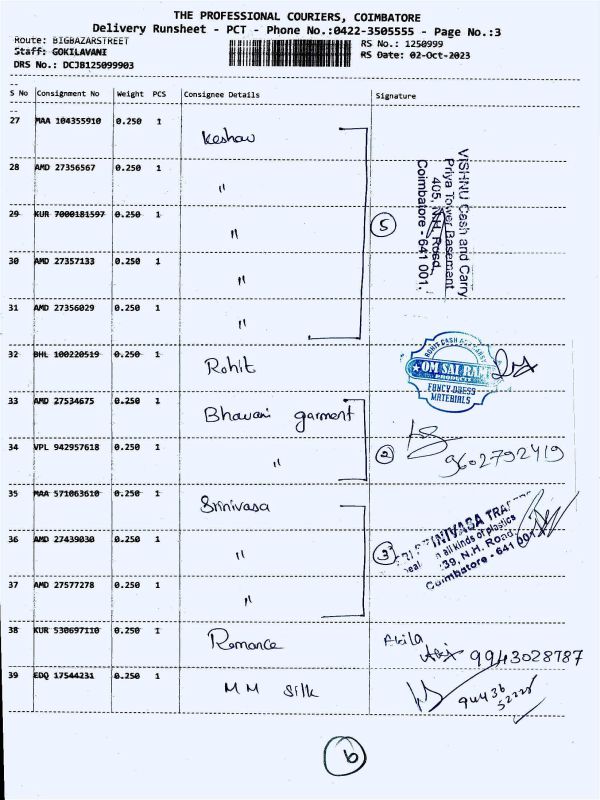 THE PROFESSIONAL COURIERS, COIMBATORE
Delivery Runsheet - PCT - Phone No.:0422-3505555 - Page No.:3
Route: BIGBAZARSTREET
RS No.: 1250999
Staff: GOKILAVANI
RS Date: 02-Oct-2023
DRS No.: DCJB125099903
S No Consignment No Weight PCS Consignee Details Signature
27 MAA 104355910 0.250 1 Keshav
28 AMD 27356567 0.250 1 "
29 KUR 7000181597 0.250 1 "
30 AMD 27357133 0.250 1 "
31 AMD 27356029 0.250 1 "
5
VISHNU Cash and Carry
Priya Tower Basement
405, N.H. Road,
Coimbatore - 641 001.
32 BHL 100220519 0.250 1 Rohit
OM SAI RAM
FANCY DRESS
MATERIALS
33 AMD 27534675 0.250 1 Bhavani garment
34 VPL 942957618 0.250 1 "
2
9602792419
35 MAA 571063610 0.250 1 Srinivasa
36 AMD 27439030 0.250 1 "
37 AMD 27577278 0.250 1 "
3
SRINIVASA
in all kinds of plastics
39, N.H. Road,
Coimbatore - 641 001.
38 KUR 530697110 0.250 1 Romance
Akila
9943028787
39 EDQ 17544231 0.250 1 MM Silk
94436
52225
6